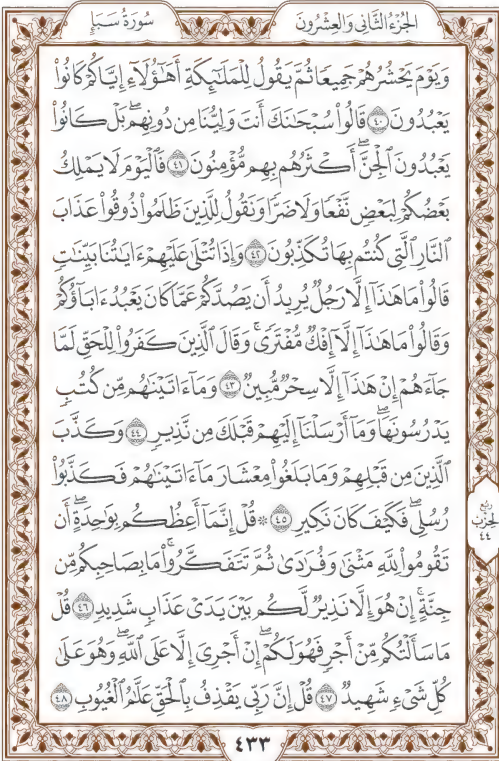 الجُزْءُ الثَّانِي وَالعِشْرُونَ
سُورَةُ سَبَإٍ
وَيَوْمَ يَحْشُرُهُمْ جَمِيعًا ثُمَّ يَقُولُ لِلْمَلَٰٓئِكَةِ أَهَٰٓؤُلَآءِ إِيَّاكُمْ كَانُوا۟
يَعْبُدُونَ ٤٠ قَالُوا۟ سُبْحَٰنَكَ أَنتَ وَلِيُّنَا مِن دُونِهِم ۖ بَلْ كَانُوا۟
يَعْبُدُونَ ٱلْجِنَّ ۖ أَكْثَرُهُم بِهِم مُّؤْمِنُونَ ٤١ فَٱلْيَوْمَ لَا يَمْلِكُ
بَعْضُكُمْ لِبَعْضٍ نَّفْعًا وَلَا ضَرًّا وَنَقُولُ لِلَّذِينَ ظَلَمُوا۟ ذُوقُوا۟ عَذَابَ
ٱلنَّارِ ٱلَّتِى كُنتُم بِهَا تُكَذِّبُونَ ٤٢ وَإِذَا تُتْلَىٰ عَلَيْهِمْ ءَايَٰتُنَا بَيِّنَٰتٍ
قَالُوا۟ مَا هَٰذَآ إِلَّا رَجُلٌ يُرِيدُ أَن يَصُدَّكُمْ عَمَّا كَانَ يَعْبُدُ ءَابَآؤُكُمْ
وَقَالُوا۟ مَا هَٰذَآ إِلَّآ إِفْكٌ مُّفْتَرًى ۚ وَقَالَ ٱلَّذِينَ كَفَرُوا۟ لِلْحَقِّ لَمَّا
جَآءَهُمْ إِنْ هَٰذَآ إِلَّا سِحْرٌ مُّبِينٌ ٤٣ وَمَآ ءَاتَيْنَٰهُم مِّن كُتُبٍ
يَدْرُسُونَهَا ۖ وَمَآ أَرْسَلْنَآ إِلَيْهِمْ قَبْلَكَ مِن نَّذِيرٍ ٤٤ وَكَذَّبَ
ٱلَّذِينَ مِن قَبْلِهِمْ وَمَا بَلَغُوا۟ مِعْشَارَ مَآ ءَاتَيْنَٰهُمْ فَكَذَّبُوا۟
رُسُلِى ۖ فَكَيْفَ كَانَ نَكِيرِ ٤٥ ۞ قُلْ إِنَّمَآ أَعِظُكُم بِوَٰحِدَةٍ ۖ أَن
تَقُومُوا۟ لِلَّهِ مَثْنَىٰ وَفُرَٰدَىٰ ثُمَّ تَتَفَكَّرُوا۟ ۚ مَا بِصَاحِبِكُم مِّن
جِنَّةٍ ۚ إِنْ هُوَ إِلَّا نَذِيرٌ لَّكُم بَيْنَ يَدَىْ عَذَابٍ شَدِيدٍ ٤٦ قُلْ
مَا سَأَلْتُكُم مِّنْ أَجْرٍ فَهُوَ لَكُمْ ۖ إِنْ أَجْرِىَ إِلَّا عَلَى ٱللَّهِ ۖ وَهُوَ عَلَىٰ
كُلِّ شَىْءٍ شَهِيدٌ ٤٧ قُلْ إِنَّ رَبِّى يَقْذِفُ بِٱلْحَقِّ عَلَّٰمُ ٱلْغُيُوبِ ٤٨
ربع
الحزب
٤٤
٤٣٣